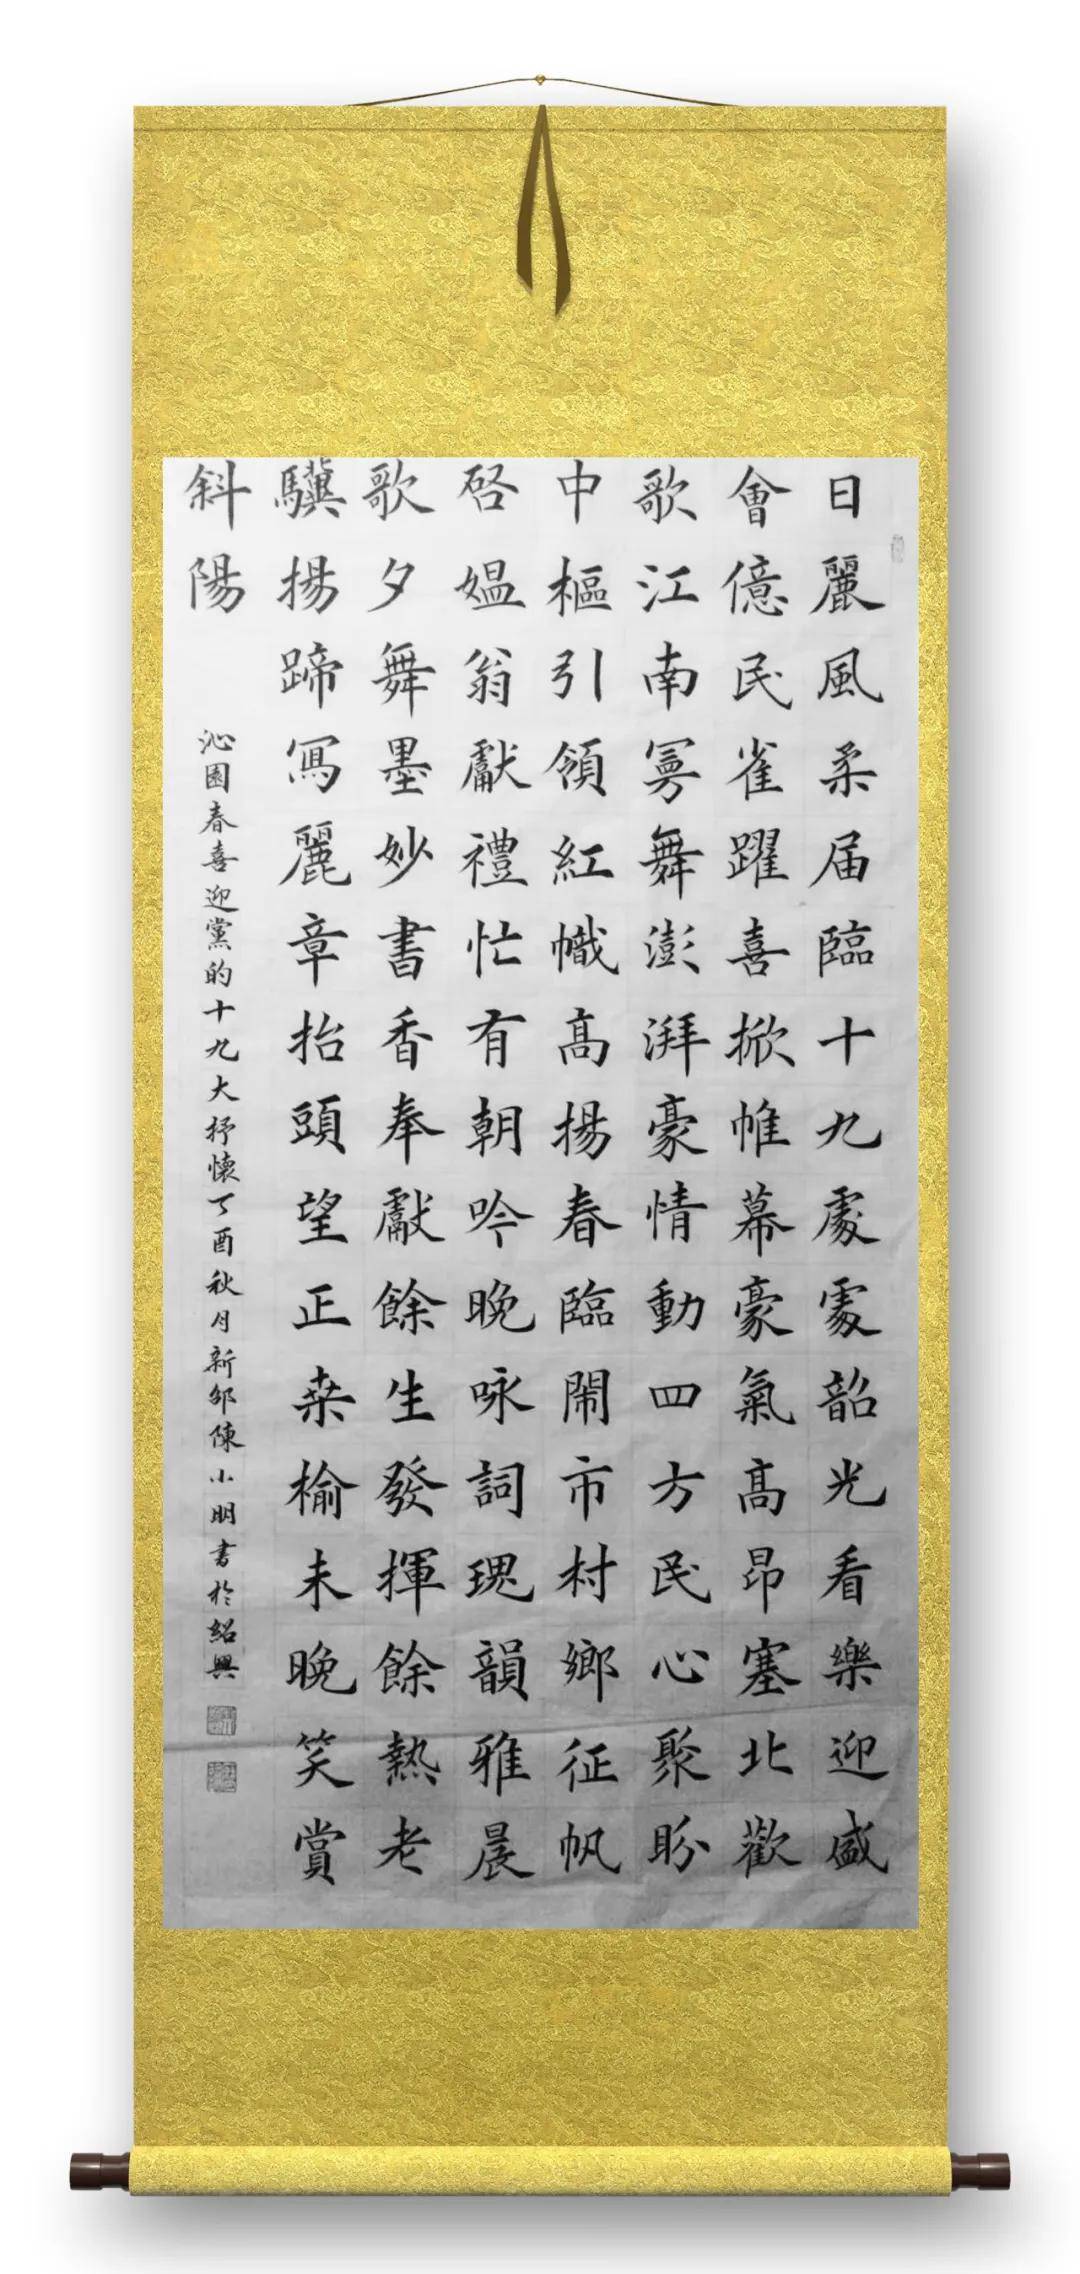 日麗風柔届臨十九處處韶光看樂迎盛
會億民雀躍喜掀帷幕豪氣高昂塞北歡
歌江南舞澎湃豪情動四方民心聚盼
中樞引領紅幟高揚春臨鬧市村鄉征帆
啓媪翁獻禮忙有朝吟晚咏詞瑰韻雅晨
歌夕舞墨妙書香奉獻餘生發揮餘熱老
驥揚蹄寫麗章抬頭望正桑榆未晚笑賞
斜陽
沁園春喜迎黨的十九大抒懷丁酉秋月新邹陳小明書於紹興